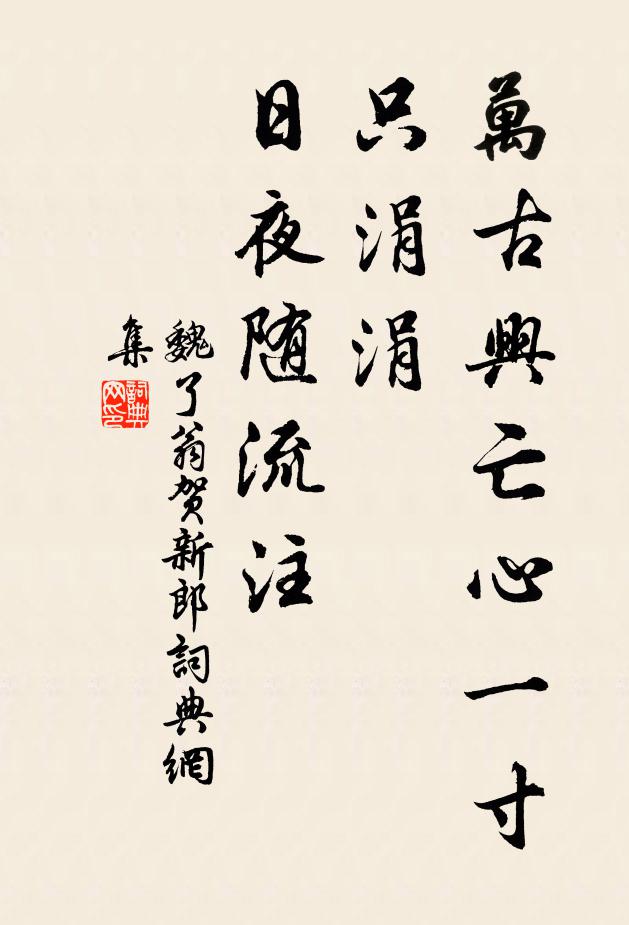 萬古興亡心一寸
只涓涓
日夜随流注
魏了翁贺新郎詞典網
集
詞典
网印